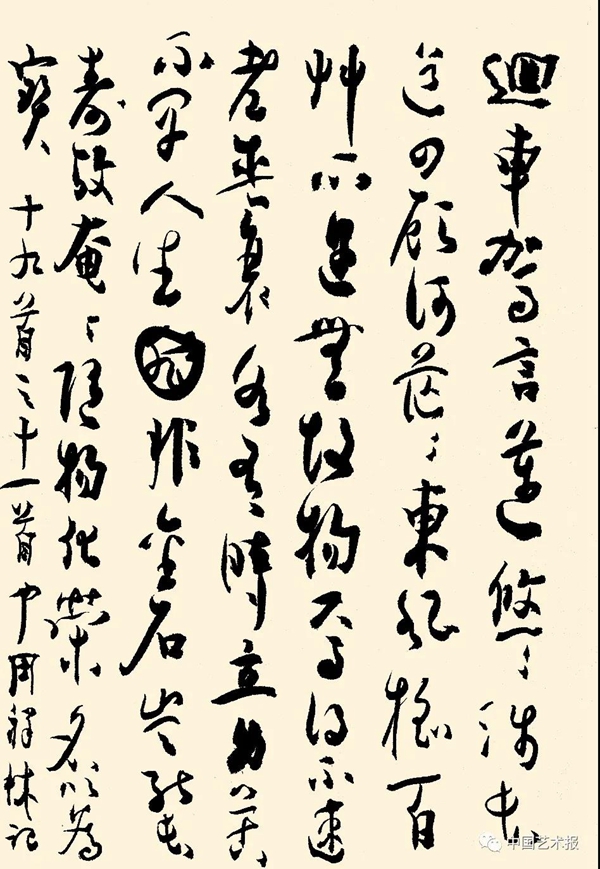 迴車駕言邁悠〻涉長
道四顧何茫〻東風搖百
艸所遇無故物焉得不速
老盛衰各有時立身苦
不早人生非金石豈能長
壽考奄〻隨物化榮名以為
寶 十九首之十一首 記
中国艺术报